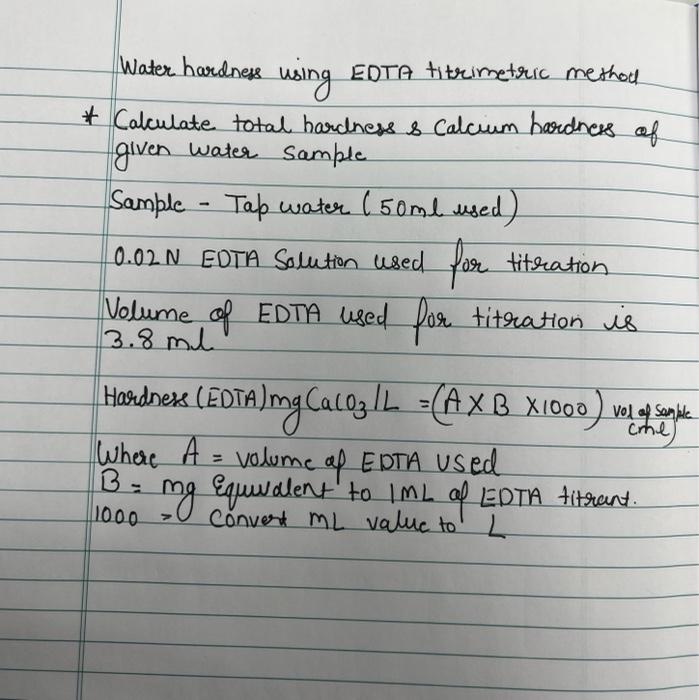 Water hardness using EDTA titrimetric method
* Calculate total hardness & Calcium hardness of
given water sample
Sample - Tap water (50ml used)
0.02 N EDTA Solution used for titration
Volume of EDTA used for titration is
3.8 ml
Hardness (EDTA) mg CaCO3/L = (A X B X1000) vol of sample
(ml)
Where A = volume of EDTA used
B = mg Equivalent to 1ML of EDTA titrant.
1000 => Convert mL value to L